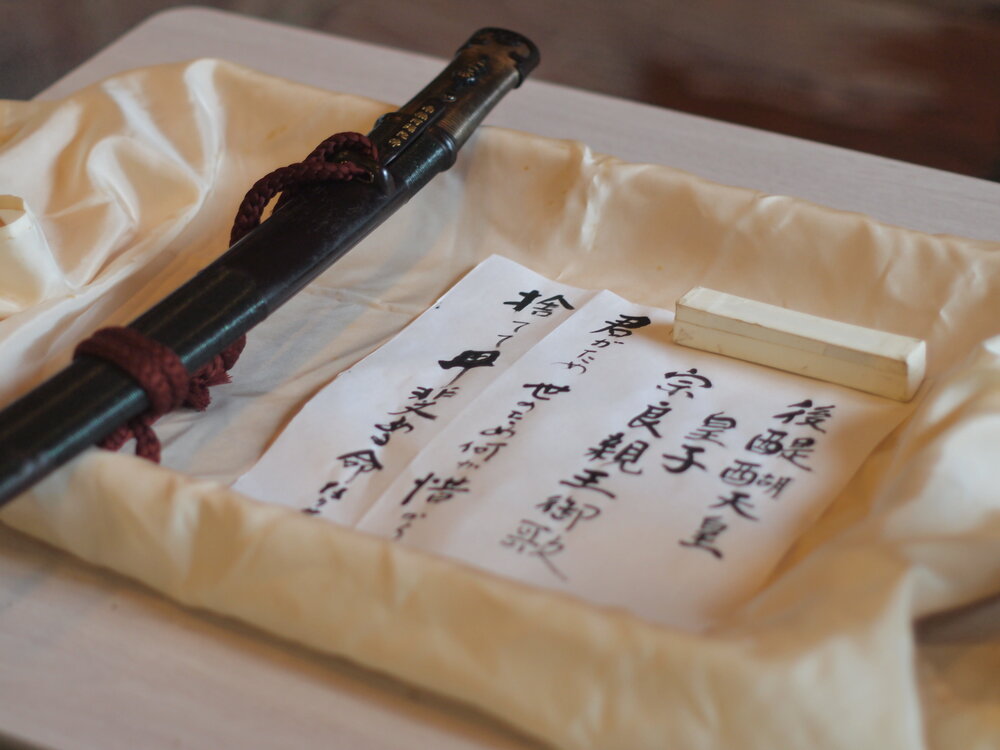 後醍醐天皇
皇子
宗良親王御歌
君がため
世のため何か惜から
捨てて甲斐ある命なり